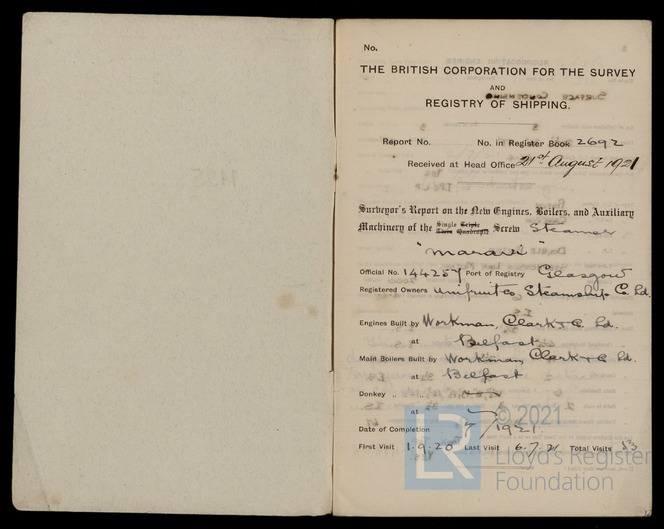 No.
THE BRITISH CORPORATION FOR THE SURVEY
AND
REGISTRY OF SHIPPING.
Report No. No. in Register Book 2692
Received at Head Office 21st August 1921
Surveyor's Report on the New Engines, Boilers, and Auxiliary
Machinery of the Single Triple Twin Quadruple Screw Steamer
"Maravi"
Official No. 144257 Port of Registry Glasgow
Registered Owners Unifruitco Steamship Co. Ld.
Engines Built by Workman, Clark & Co. Ld.
at Belfast
Main Boilers Built by Workman, Clark & Co. Ld.
at Belfast
Donkey „ „
at
Date of Completion 7/1921.
First Visit 1.9.20 Last Visit 6.7.21 Total Visits
LR © 2021
Lloyd's Register
Foundation